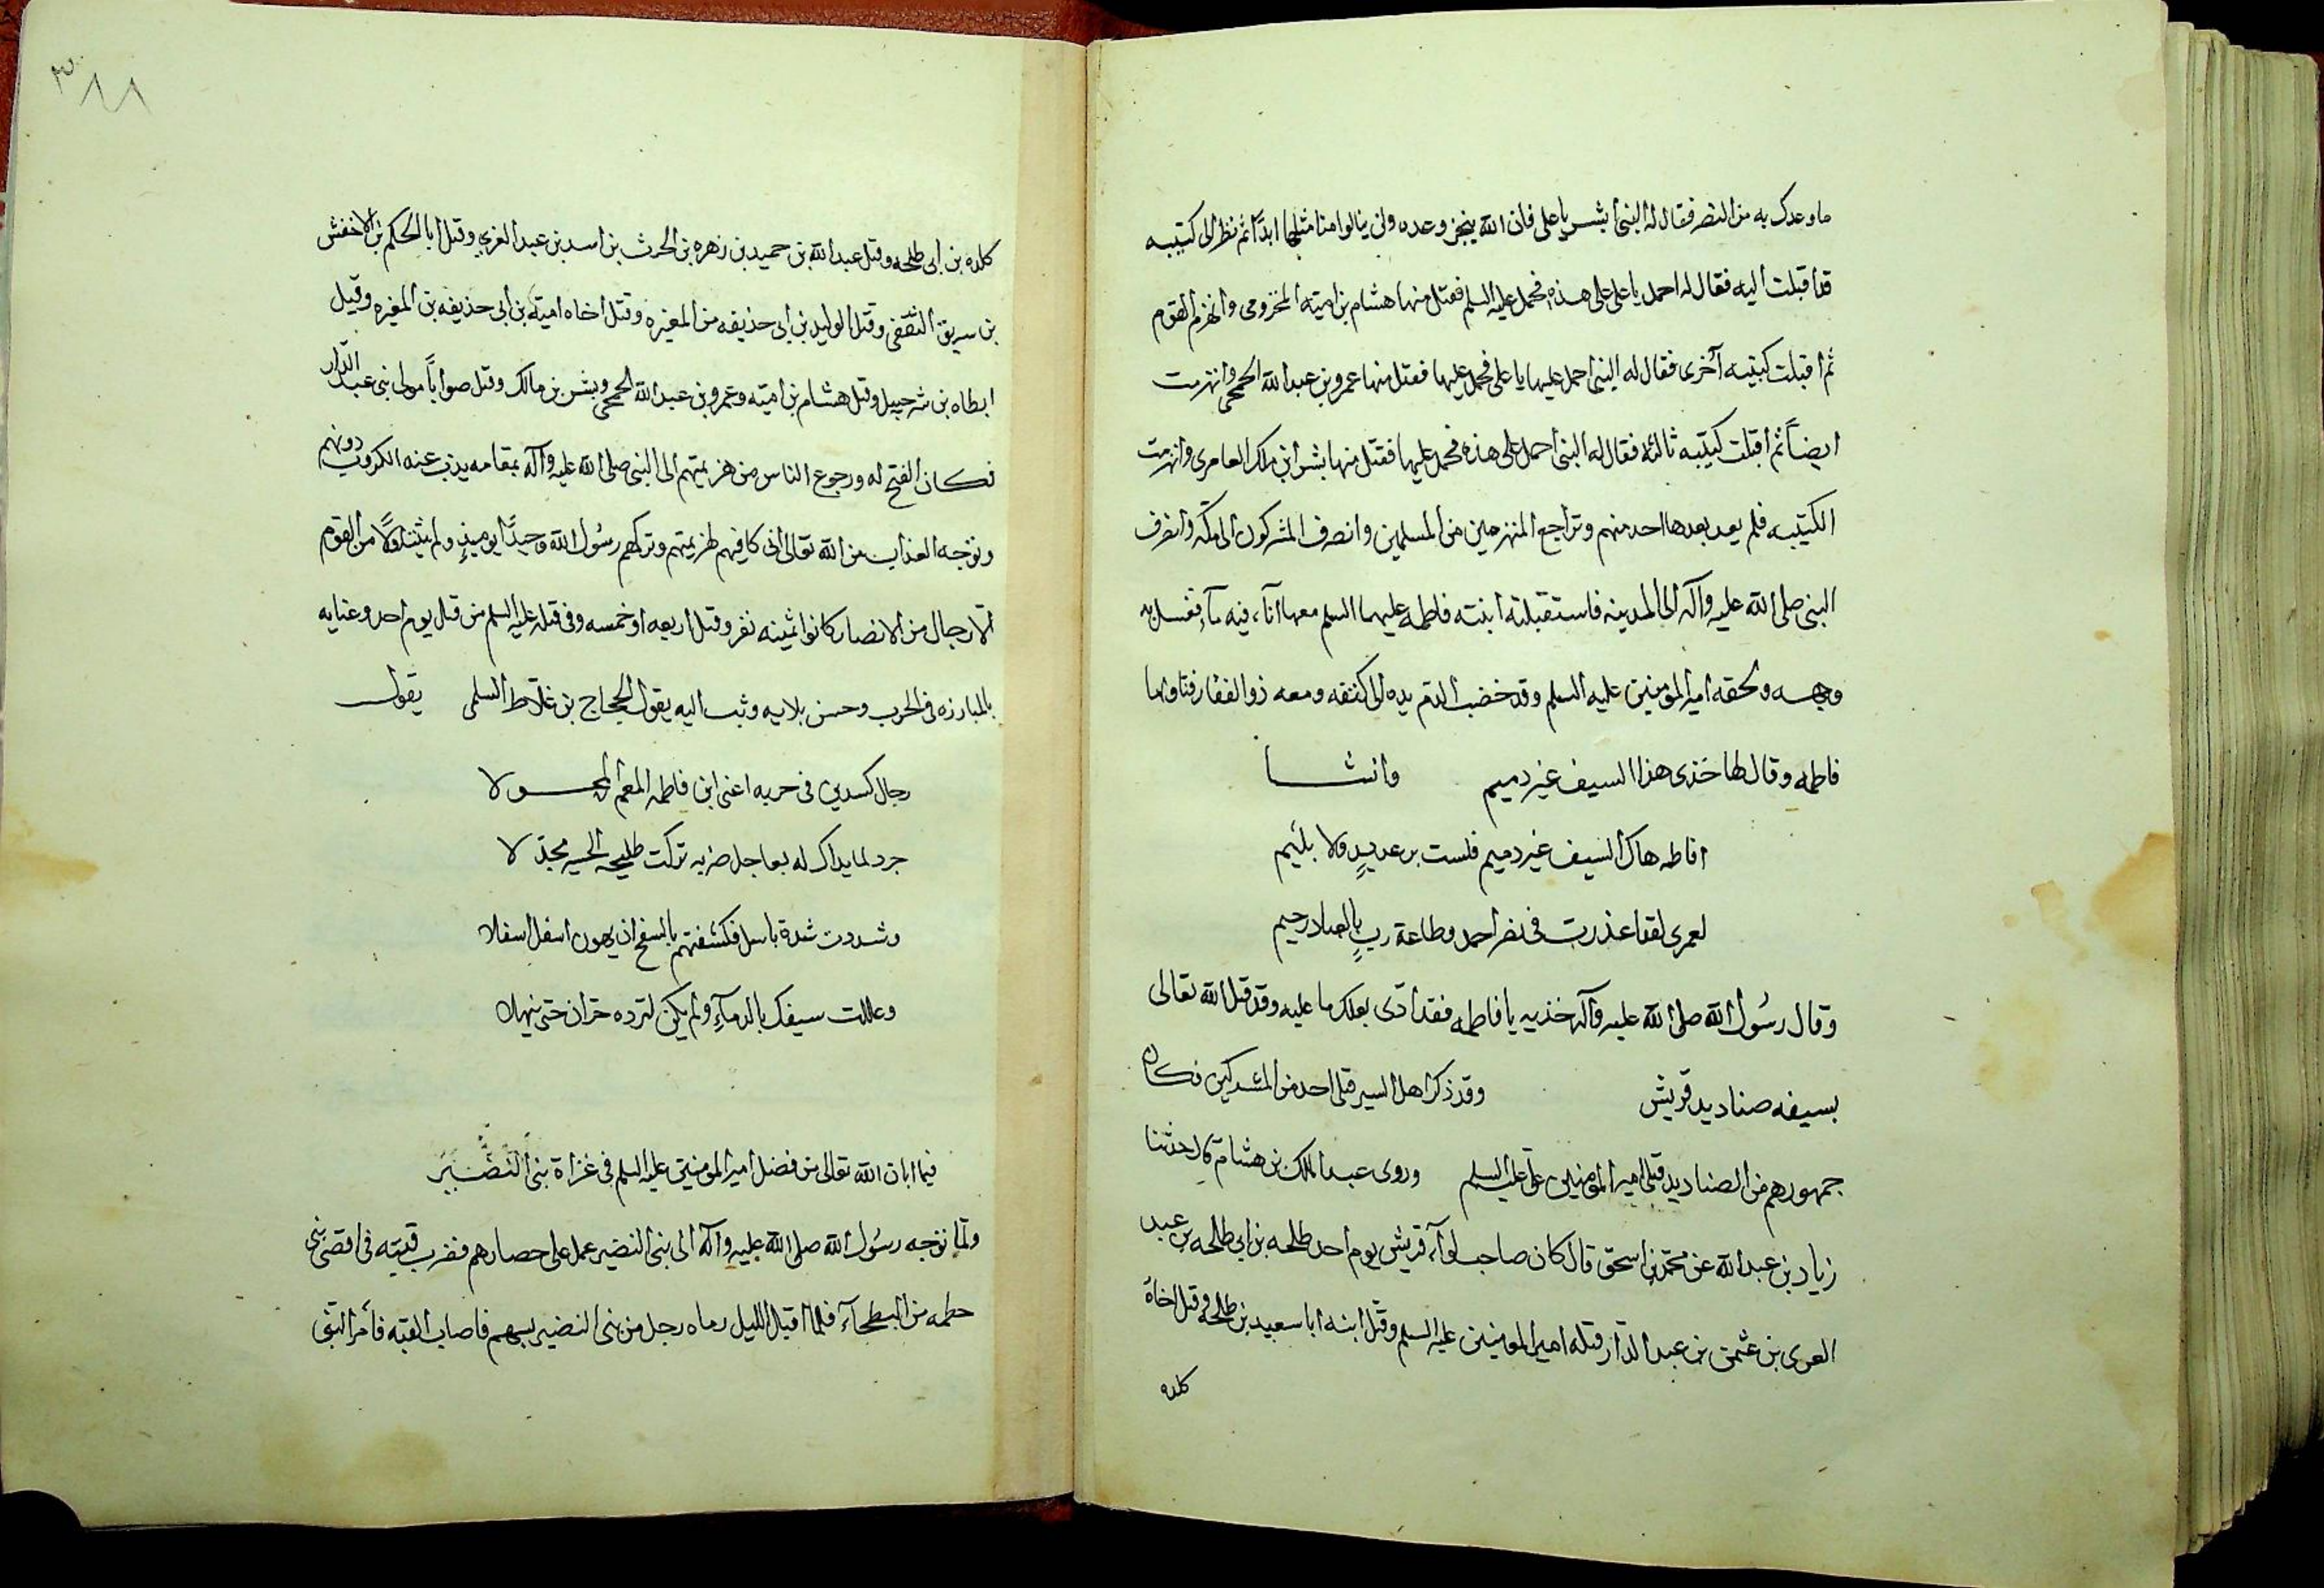 ما وعدك به من النصر فقال له النبى ابشر يا على فان الله ينجز وعده ولن ينالوا منا مثلها ابدًا ثم نظر الى كتيبه
قد اقبلت اليه فقال له احمل يا على على هذه فحمل عليه السلم فقتل منها هشام بن اميته المخزومى وانهزم القوم
ثم اقبلت كتيبه أخرى فقال له النبى احمل عليها يا على فحمل عليها فقتل منها عمرو بن عبد الله الجمحى وانهزمت
ايضاً ثم اقبلت كتيبه ثالثه فقال له النبى احمل على هذه فحمل عليها فقتل منها بشر ابن ملك العامرى وانهزمت
الكتيبه فلم يعد بعدها احد منهم وتراجع المنهزمين من المسلمين وانصرف المشركون الى مكه وانصرف
النبى صلى الله عليه وآله الى المدينه فاستقبلته ابنته فاطمه عليهما السلم معها اناء فيه مآء فغسل به
وجهه ولحقه امير المؤمنين عليه السلم وقد خضب الدم يده الى كتفه ومعه ذو الفقار فناولها
فاطمه وقال لها خذى هذا السيف غير ذميم وانشا
افاطم هاك السيف غير ذميم فلست برعديدٍ ولا بلئيم
لعمرى لقد اعذرت فى نصر احمد وطاعة ربٍ بالعباد رحيم
وقال رسُول الله صلى الله عليه وآله خذيه يا فاطمه فقد ادى بعلك ما عليه وقد قتل الله تعالى
بسيفه صناديد قريش وقد ذكر اهل السير قتلى احد من المشركين فكان
جمهورهم من الصناديد قتلى امير المؤمنين على عليه السلم وروى عبد الملك بن هشام قال حدثنا
زياد بن عبد الله عن محمد بن اسحق قال كان صاحب لوآء قريش يوم احد طلحه بن ابى طلحه بن عبد
العزى بن عثمن بن عبد الدار قتله امير المومنين عليه السلم وقتل ابنه ابا سعيد بن طلحه وقتل اخاه
كلده
٣٨٨
كلده بن ابى طلحه وقتل عبد الله بن حميد بن زهره بن الحرث بن اسد بن عبد العزى وقتل ابا الحكم بن الاخفش
بن سريق الثقفى وقتل الوليد بن ابى حذيفه من المغيره وقتل اخاه اميته بن ابى حذيفه بن المغيره وقتل
ابطاه بن شرحبيل وقتل هشام بن اميته وعمرو بن عبد الله الجمحى وبشر بن مالك وقتل صواباً مولى بنى عبد الدار
فكان الفتح له ورجوع الناس من هزيمتهم الى النبى صلى الله عليه وآله بمقامه يذب عنه الكروب دونهم
وتوجه العذاب من الله تعالى الى كافيهم لهزيمتهم وتركهم رسُول الله وحيدًا يوميذٍ ولم من القوم
الا رجال من الانصار كانوا ثمينه نفر وقتل اربعه او خمسه وفى قتله عليه السلم من قتل يوم احد وعنايه
بالمبارزه فى الحرب وحسن بلايه وثب اليه يقول الحجاج بن غلاط السلمى يقول
رجال كسدين فى حربه اعنى ابن فاطمه المعم المخولا
جرد لما يداك له بعاجل ضربه تركت طليحه الجسيه مجدلا
وشددت شدة باسل فكشفتهم بالسفح اذ يهون اسفل اسفلا
وعللت سيفك بالدمآء ولم يكن لترده حران حتى ينهلا
فيما ابان الله تعالى من فضل امير المومنين عليه السلم فى غزاة بنى النَضير
ولما توجه رسُول الله صلى الله عليه وآله الى بنى النضير عمل على حصارهم فضرب قبته فى اقصى بنى
حطمه من البطحآء فلما اقبل الليل رماه رجل من بنى النضير بسهم فاصاب القبه فأمر النبى